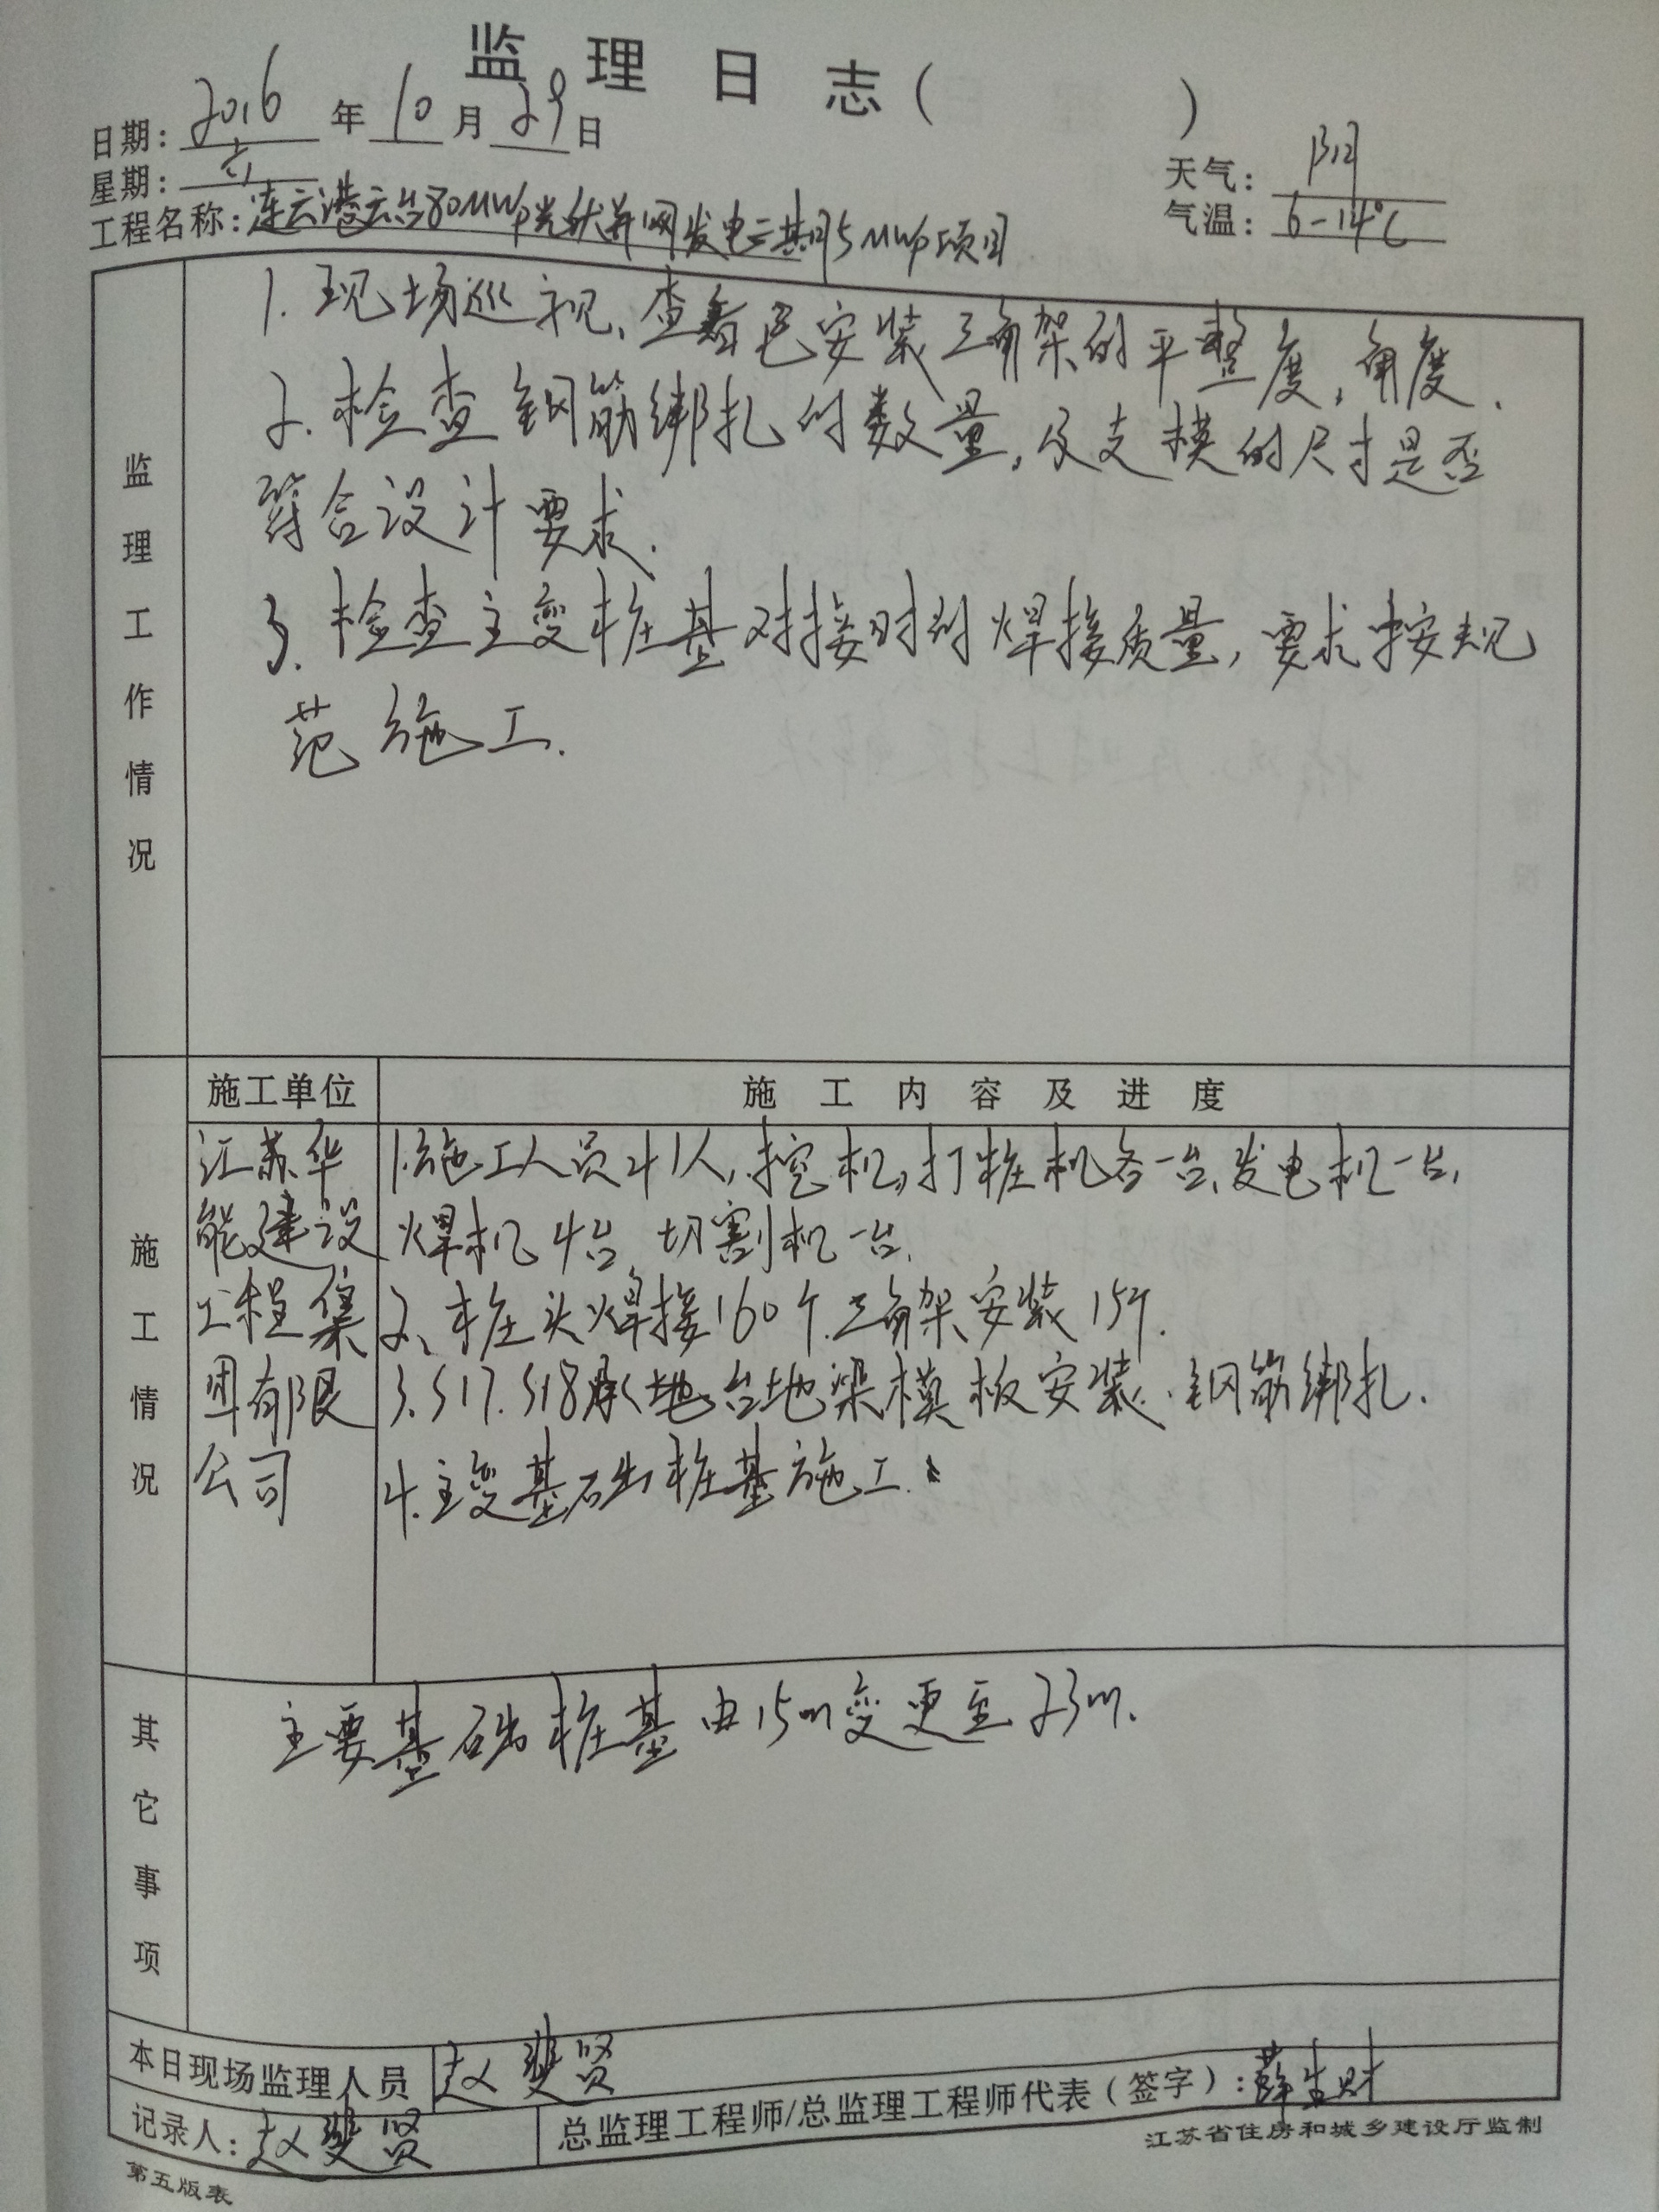 监 理 日 志（ ）
日期：2016 年 10 月 29 日
星期：六
天气：阴
气温：6-14℃
工程名称：连云港云台80MWp光伏并网发电二期35MWp项目
监理工作情况
1. 现场巡视，查看已安装三角架的平整度，角度.
2. 检查钢筋绑扎的数量，及支模的尺寸是否
符合设计要求.
3. 检查主变桩基对接时的焊接质量，要求按规
范施工.
施工情况
施工单位
施 工 内 容 及 进 度
江苏华
能建设
工程集
团有限
公司
1.施工人员41人，挖机，打桩机各一台、发电机一台，
焊机4台 切割机一台.
2、桩头焊接160个.三角架安装15个.
3.S17.S18承台地梁模板安装.钢筋绑扎.
4.主变基础桩基施工.
其它事项
主要基础桩基由15m变更至23m.
本日现场监理人员 赵斐贤
记录人：赵斐贤
总监理工程师/总监理工程师代表（签字）：薛生财
江苏省住房和城乡建设厅监制
第五版表